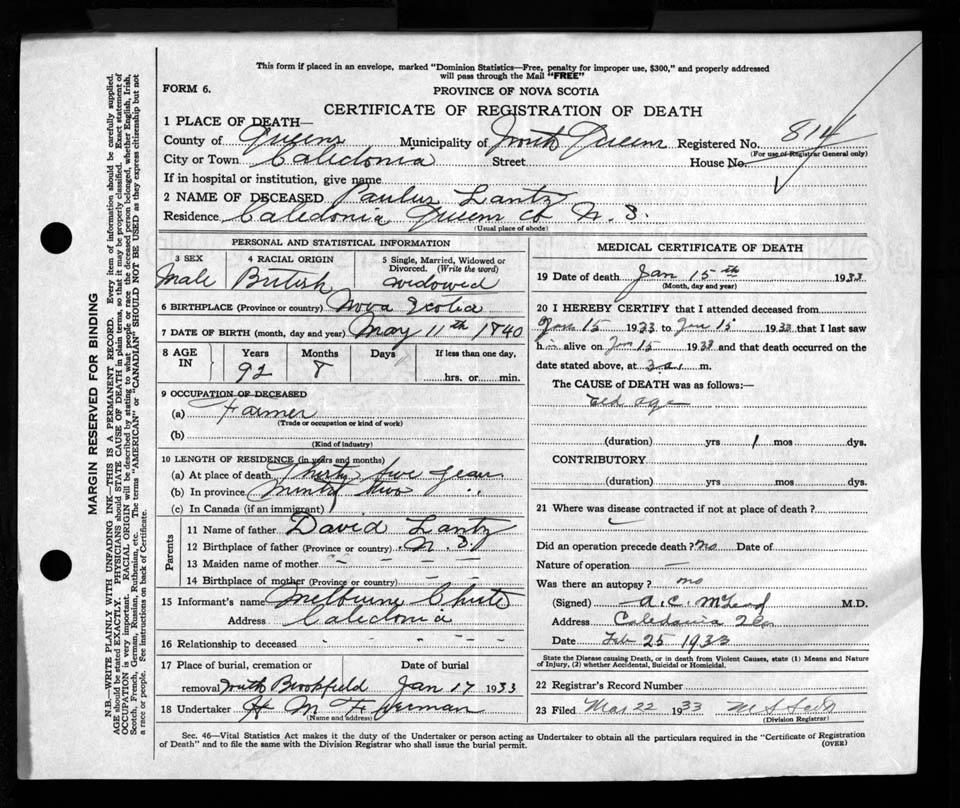 This form if placed in an envelope, marked "Dominion Statistics—Free, penalty for improper use, $300," and properly addressed
will pass through the Mail "FREE"
FORM 6.
PROVINCE OF NOVA SCOTIA
CERTIFICATE OF REGISTRATION OF DEATH
1 PLACE OF DEATH—
County of Queens Municipality of North Queens Registered No. 814
(For use of Registrar General only)
City or Town Caledonia Street House No.
If in hospital or institution, give name
2 NAME OF DECEASED Paulus Lantz
Residence Caledonia Queens Co N. S.
(Usual place of abode)
PERSONAL AND STATISTICAL INFORMATION
3 SEX 4 RACIAL ORIGIN 5 Single, Married, Widowed or
Divorced. (Write the word)
Male British widowed
6 BIRTHPLACE (Province or country) Nova Scotia
7 DATE OF BIRTH (month, day and year) May 11th 1840
8 AGE IN Years Months Days If less than one day,
92 8 hrs. or min.
9 OCCUPATION OF DECEASED
(a) Farmer
(Trade or occupation or kind of work)
(b)
(Kind of industry)
10 LENGTH OF RESIDENCE (in years and months)
(a) At place of death Thirty five years
(b) In province ninety two "
(c) In Canada (if an immigrant)
Parents
11 Name of father David Lantz
12 Birthplace of father (Province or country) N. S.
13 Maiden name of mother
14 Birthplace of mother (Province or country) — —
15 Informant's name Melburne Chute
Address Caledonia
16 Relationship to deceased
17 Place of burial, cremation or Date of burial
removal South Brookfield Jan 17 1933
18 Undertaker H M F
(Name and address)
MEDICAL CERTIFICATE OF DEATH
19 Date of death Jan 15th 1933
(Month, day and year)
20 I HEREBY CERTIFY that I attended deceased from
Jan 15 1933 to Jan 15 1933 that I last saw
him alive on Jan 15 1933 and that death occurred on the
date stated above, at 3 a. m.
The CAUSE of DEATH was as follows:—
old age
(duration) yrs 1 mos dys.
CONTRIBUTORY
(duration) yrs. mos. dys.
21 Where was disease contracted if not at place of death?
Did an operation precede death? no Date of
Nature of operation —
Was there an autopsy? no
(Signed) A. C. McLeod M.D.
Address Caledonia
Date Feb 25 1933
State the Disease causing Death, or in death from Violent Causes, state (1) Means and Nature
of Injury, (2) whether Accidental, Suicidal or Homicidal.
22 Registrar's Record Number
23 Filed Mar 22 1933 M S
(Division Registrar)
Sec. 46—Vital Statistics Act makes it the duty of the Undertaker or person acting as Undertaker to obtain all the particulars required in the "Certificate of Registration
of Death" and to file the same with the Division Registrar who shall issue the burial permit.
(OVER)
MARGIN RESERVED FOR BINDING
N.B.—WRITE PLAINLY WITH UNFADING INK—THIS IS A PERMANENT RECORD. Every item of information should be carefully supplied.
AGE should be stated EXACTLY. PHYSICIANS should STATE CAUSE OF DEATH in plain terms, so that it may be properly classified. Exact statement of
OCCUPATION is very important. RACIAL ORIGIN will be described by stating to what people or race the deceased person belonged, whether English, Irish,
Scotch, French, German, Russian, Ruthenian, etc. The terms "AMERICAN" or "CANADIAN" SHOULD NOT BE USED as they express citizenship but not
a race or people. See instructions on back of Certificate.